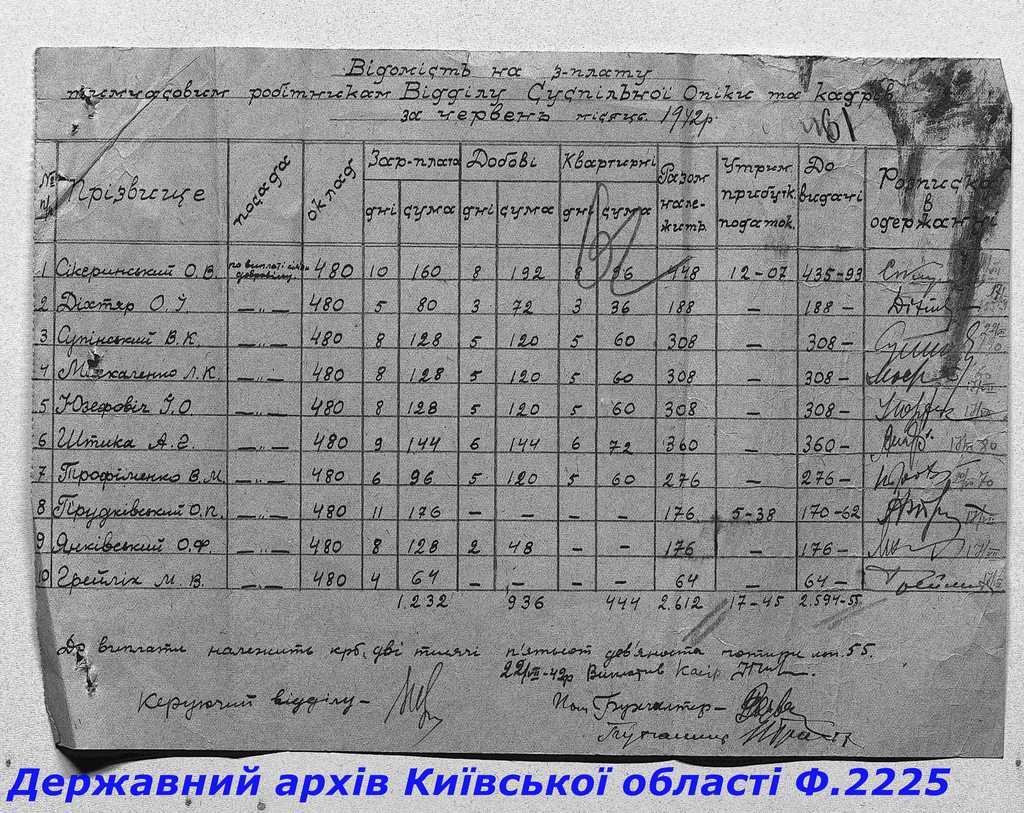 Відомість на з-плату
тимчасовим робітникам Відділу Суспільної Опіки та кадрів
за червень місяць 1942р.
61
№ п/п Прізвище посада оклад Зар-плата дні сума Добові дні сума Квартирні дні сума Разом нале-жить Утрим. прибутк. податок. До видачі Розписка в одержанні
1 Сікеринський О.В. по виплаті 480 10 160 8 192 8 96 448 12-07 435-93
2 Діхтяр О.Й. —„— 480 5 80 3 72 3 36 188 — 188 —
3 Супінський В.К. —„— 480 8 128 5 120 5 60 308 — 308 —
4 Л.К. —„— 480 8 128 5 120 5 60 308 — 308 —
5 Юзефовіч Й.О —„— 480 8 128 5 120 5 60 308 — 308 —
6 Штика А.Є. —„— 480 9 144 6 144 6 72 360 — 360 —
7 Трофіменко В.М. —„— 480 6 96 5 120 5 60 276 — 276 —
8 О.П. —„— 480 11 176 — — — — 176 5-38 170-62
9 Янківський О.Ф. —„— 480 8 128 2 48 — — 176 — 176 —
10 Грейліх М.В. —„— 480 4 64 — — — — 64 — 64 —
1.232 936 444 2.612 17-45 2.594-55
До виплати належить крб. дві тисячі п'ятьсот дев'яноста чотири коп. 55.
22/VII-42р Виплатив Касір
Керуючий відділу —
Пом Бухгалтер —
Державний архів Київської області Ф.2225